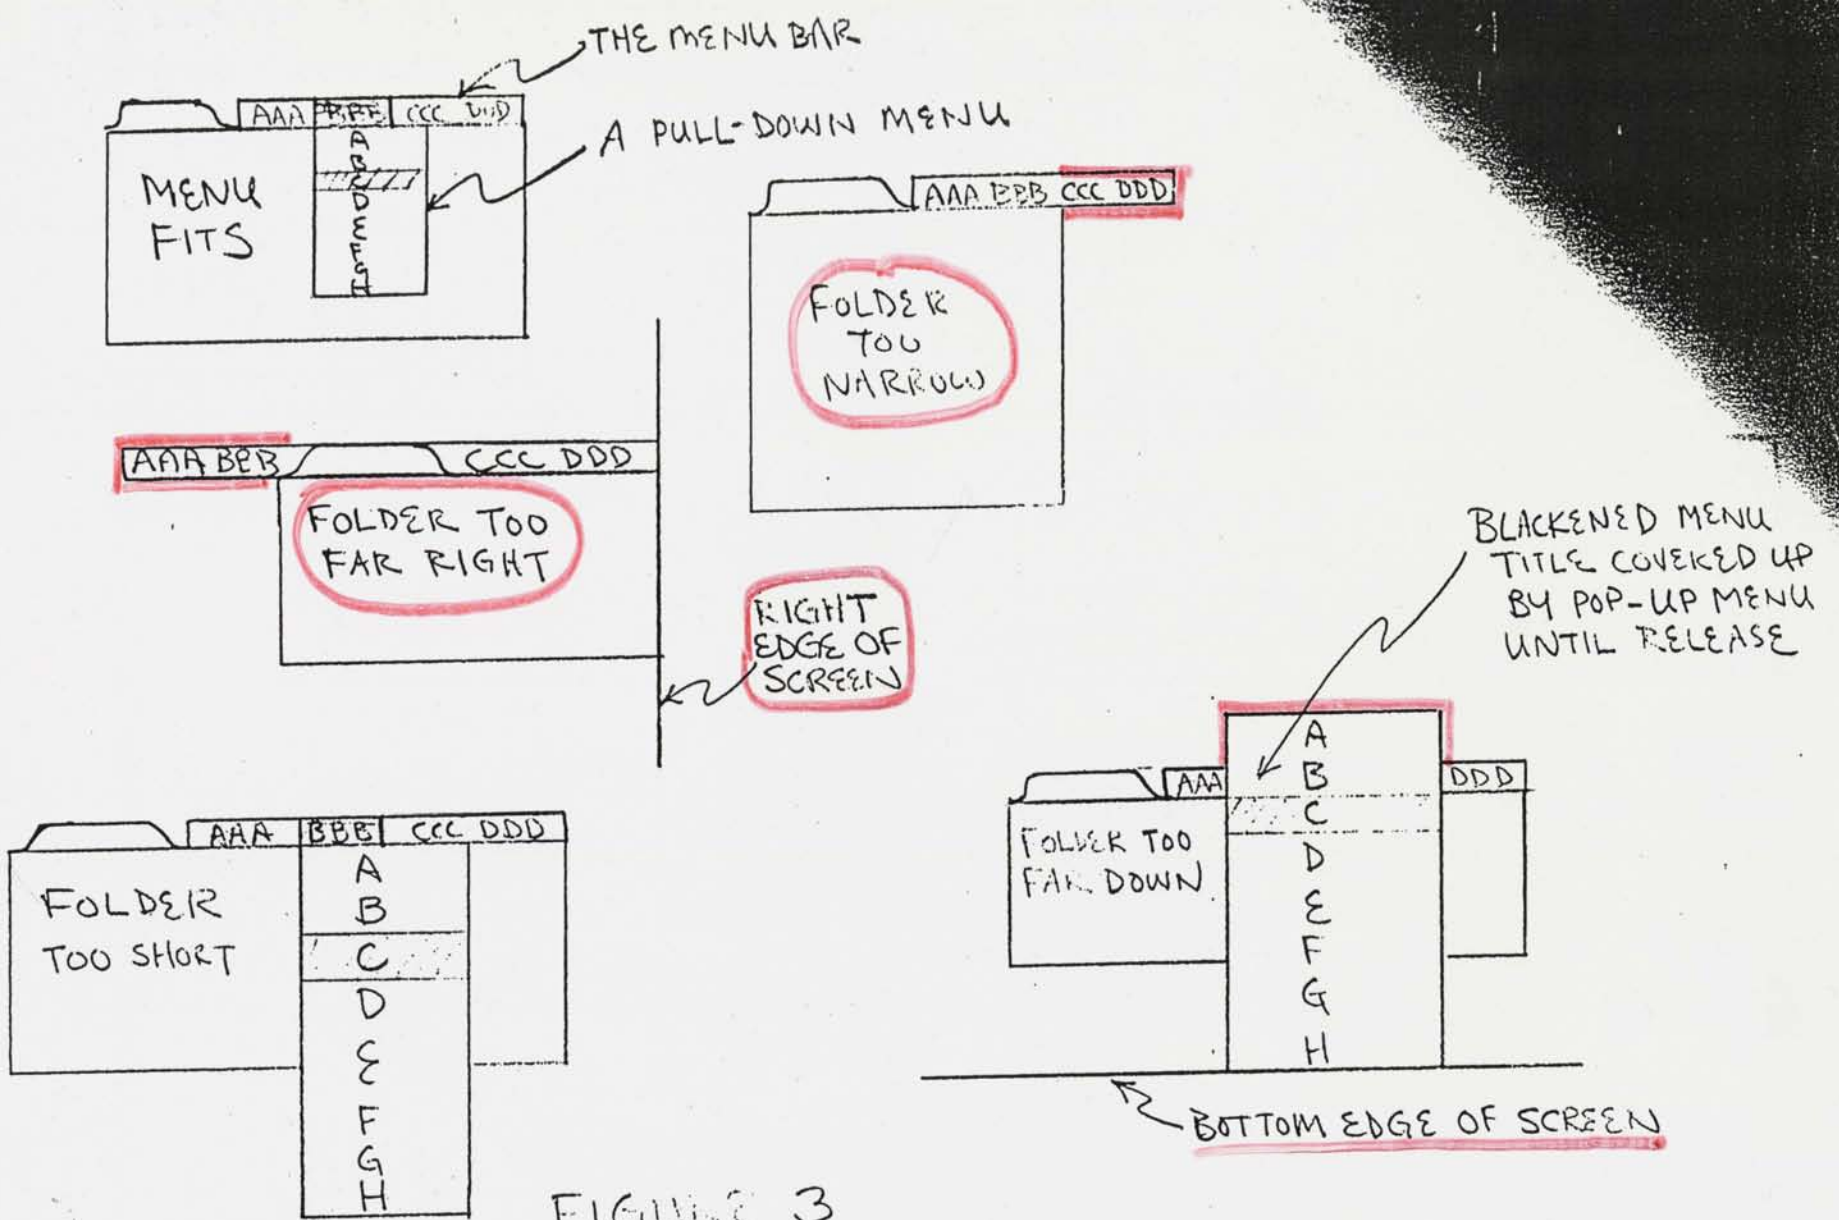 THE MENU BAR
AAA BBB CCC DDD
A PULL-DOWN MENU
A
B
C
D
E
F
G
H
MENU
FITS
AAA BBB CCC DDD
FOLDER
TOO
NARROW
AAA BBB CCC DDD
FOLDER TOO
FAR RIGHT
RIGHT
EDGE OF
SCREEN
BLACKENED MENU
TITLE COVERED UP
BY POP-UP MENU
UNTIL RELEASE
AAA BBB CCC DDD
FOLDER
TOO SHORT
A
B
C
D
E
F
G
H
AAA DDD
FOLDER TOO
FAR DOWN
A
B
C
D
E
F
G
H
BOTTOM EDGE OF SCREEN
FIGURE 3